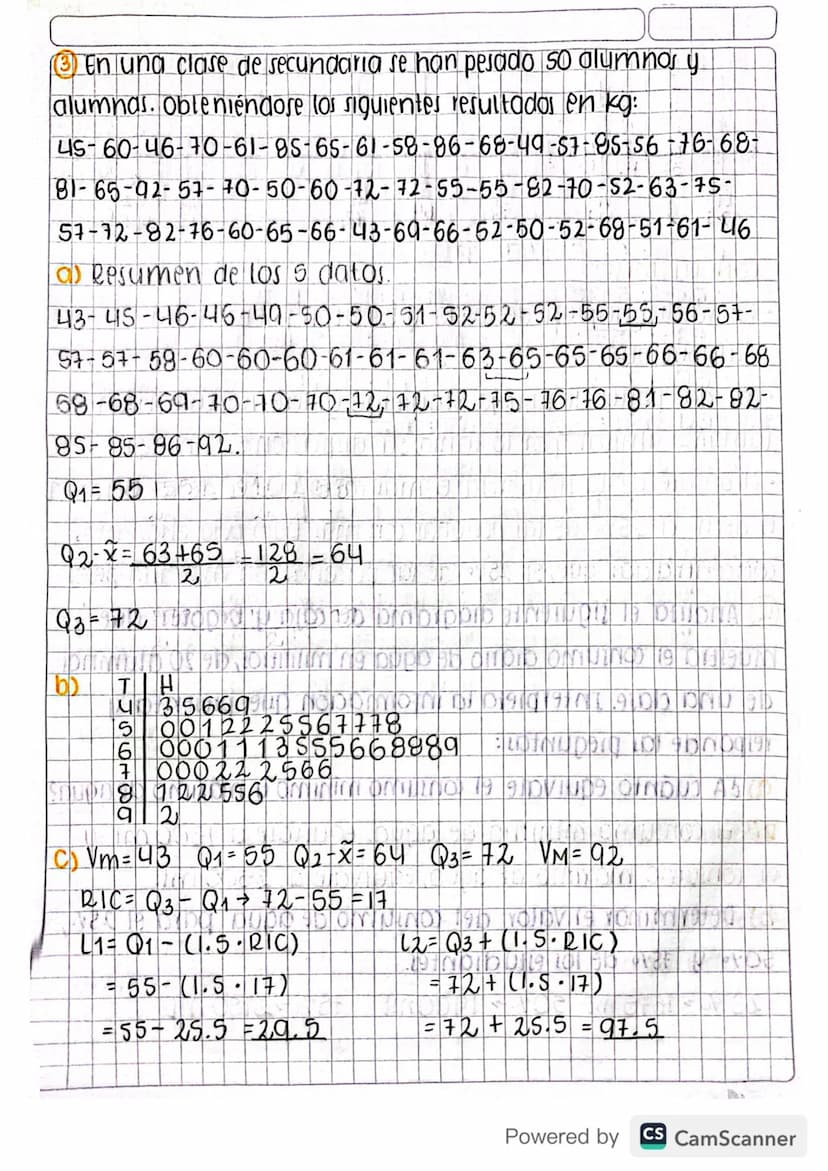 ③ En una clase de secundaria se han pesado 50 alumnos y
alumnas. Obteniéndose los siguientes resultados en kg:
45-60-46-70-61-85-65-61-58-86-68-49-57-85-56-76-68-
81-65-92-57-70-50-60-72-72-55-55-82-70-52-63-75-
57-72-82-76-60-65-66-43-69-66-52-50-52-68-51-61-46
a) Resumen de los 5 datos.
43-45-46-46-49-50-50-51-52-52-52-55-55-56-57-
57-57-58-60-60-60-61-61-61-63-65-65-65-66-66-68
68-68-69-70-70-70-72-72-72-75-76-76-81-82-82-
85-85-86-92.
Q1= 55
Q2-x̃= 63+65 = 128 = 64
2 2
Q3= 72
b) T H
4 35669
5 0012225567778
6 0001113555668889
7 000222566
8 122556
9 2
c) Vm=43 Q1=55 Q2-x̃=64 Q3=72 VM=92
RIC= Q3-Q1→ 72-55=17
L1= Q1-(1.5·RIC) L2= Q3+(1.5·RIC)
= 55-(1.5·17) =72+(1.5·17)
=55-25.5 =29.5 =72+25.5 =97.5
Powered by CS CamScanner